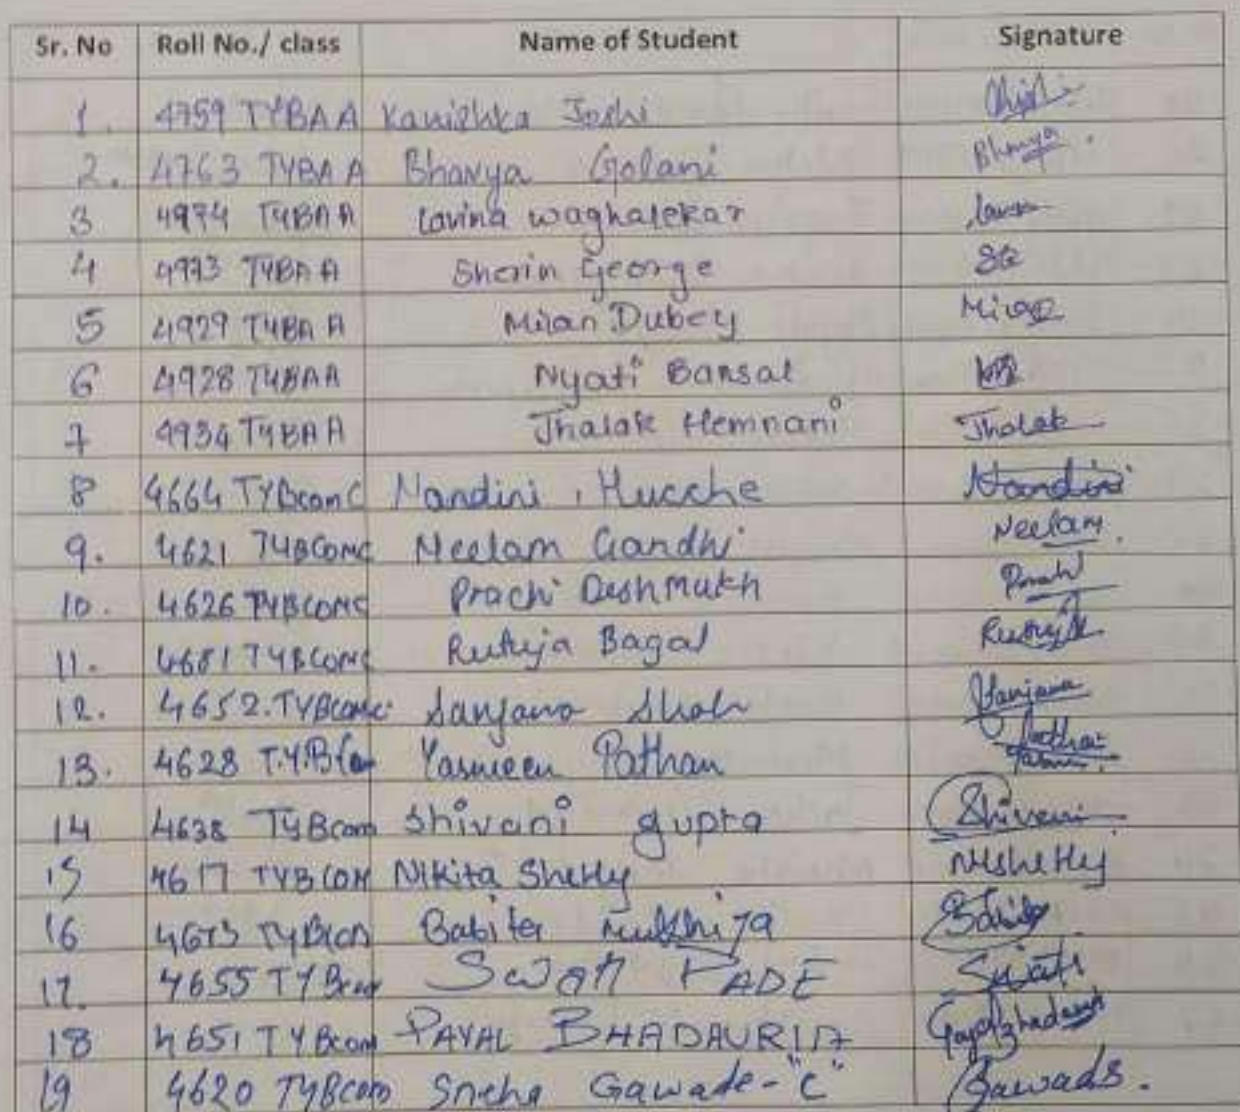 Sr. No Roll No./ class Name of Student Signature
1. 4759 TYBAA Kanishka Joshi
2. 4763 TYBAA Bhavya Golani Bhavya.
3 4974 TYBAA Lavina waghalekar
4 4973 TYBAA Sherin George SG
5 4929 TYBAA Milan Dubey
6 4928 TYBAA Nyati Bansal
7 4934 TYBAA Jhalak Hemnani Jhalak
8 4664 TYBcomC Nandini Hucche Nandini
9. 4621 TYBCOMC Neelam Gandhi Neelam.
10. 4626 TYBCOMC Prachi Deshmukh
11. 4681 TYBCOMC Rutuja Bagal
12. 4652. TYBCOMC Sanjana Shah Sanjana
13. 4628 T.Y.BCom Yasmeen Pathan
14 4638 TYBcom Shivani gupta Shivani
15 4617 TYBCOM Nikita Shetty NShetty
16 TYBCOM
17. 4655 TYBcom Swati Swati
18 4651 TYBcom PAYAL BHADAURIA
19 4620 TYBcom Sneha Gawade-"C"